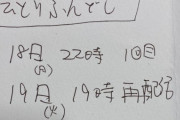 ひとりふんどし
18日(月) 22時 1回目
19日(火) 19時 再配信